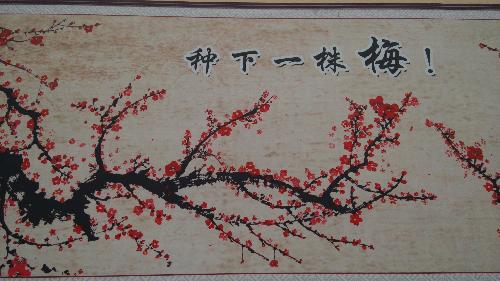 种下一株梅！